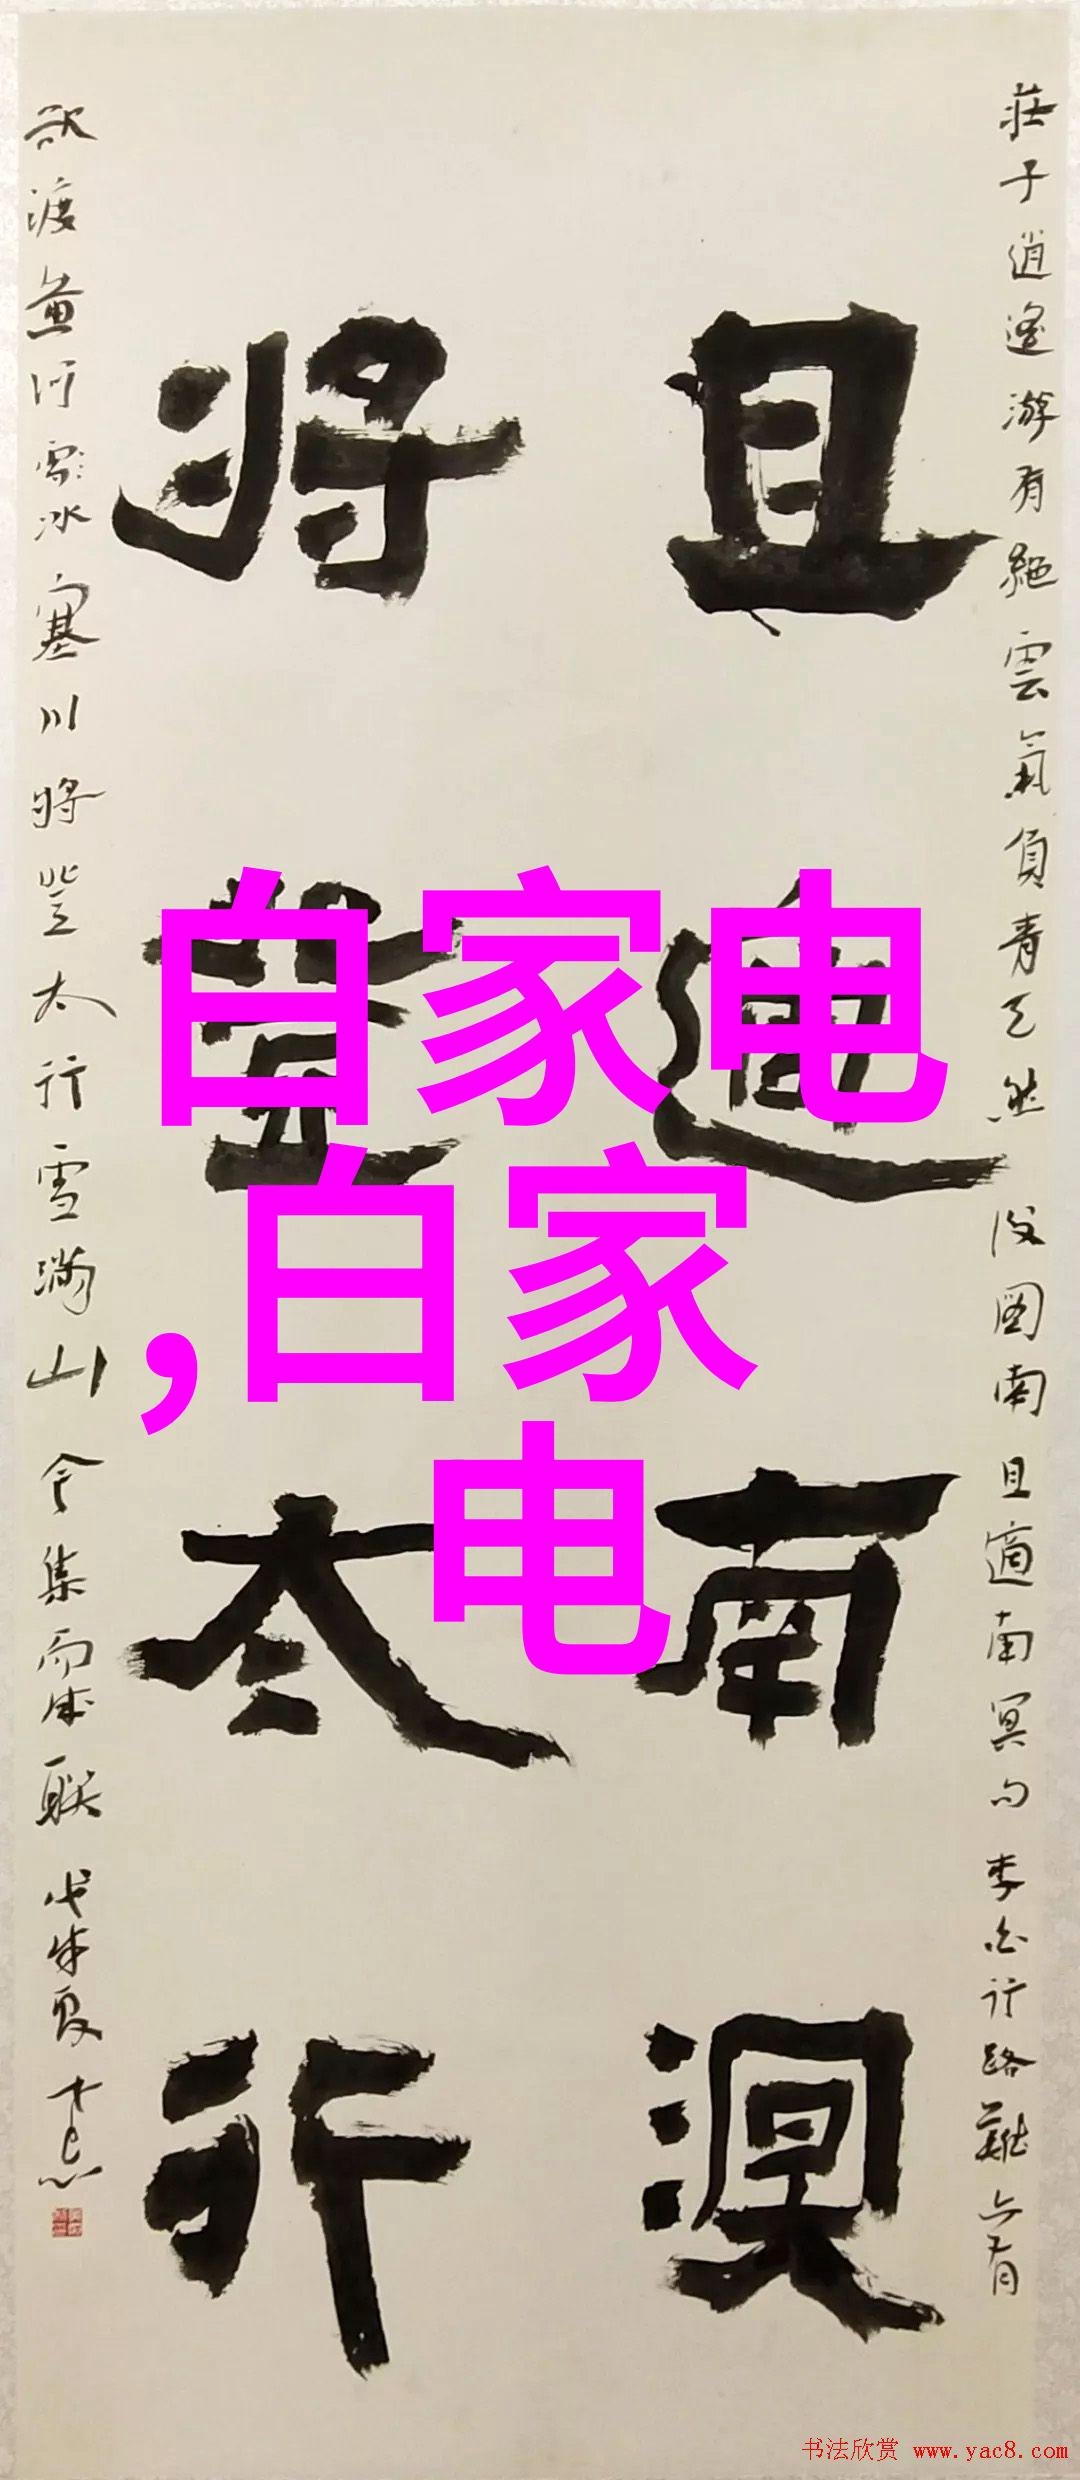 莊子逍遙游有絕雲氣負青天然後圖南且適南冥句李白行路難亦有
且適南溟
將登太行
欲渡黃河冰塞川將登太行雪滿山今集而成聯戊戌夏
白家电
,白家
电
书法欣赏 www.yac8.com